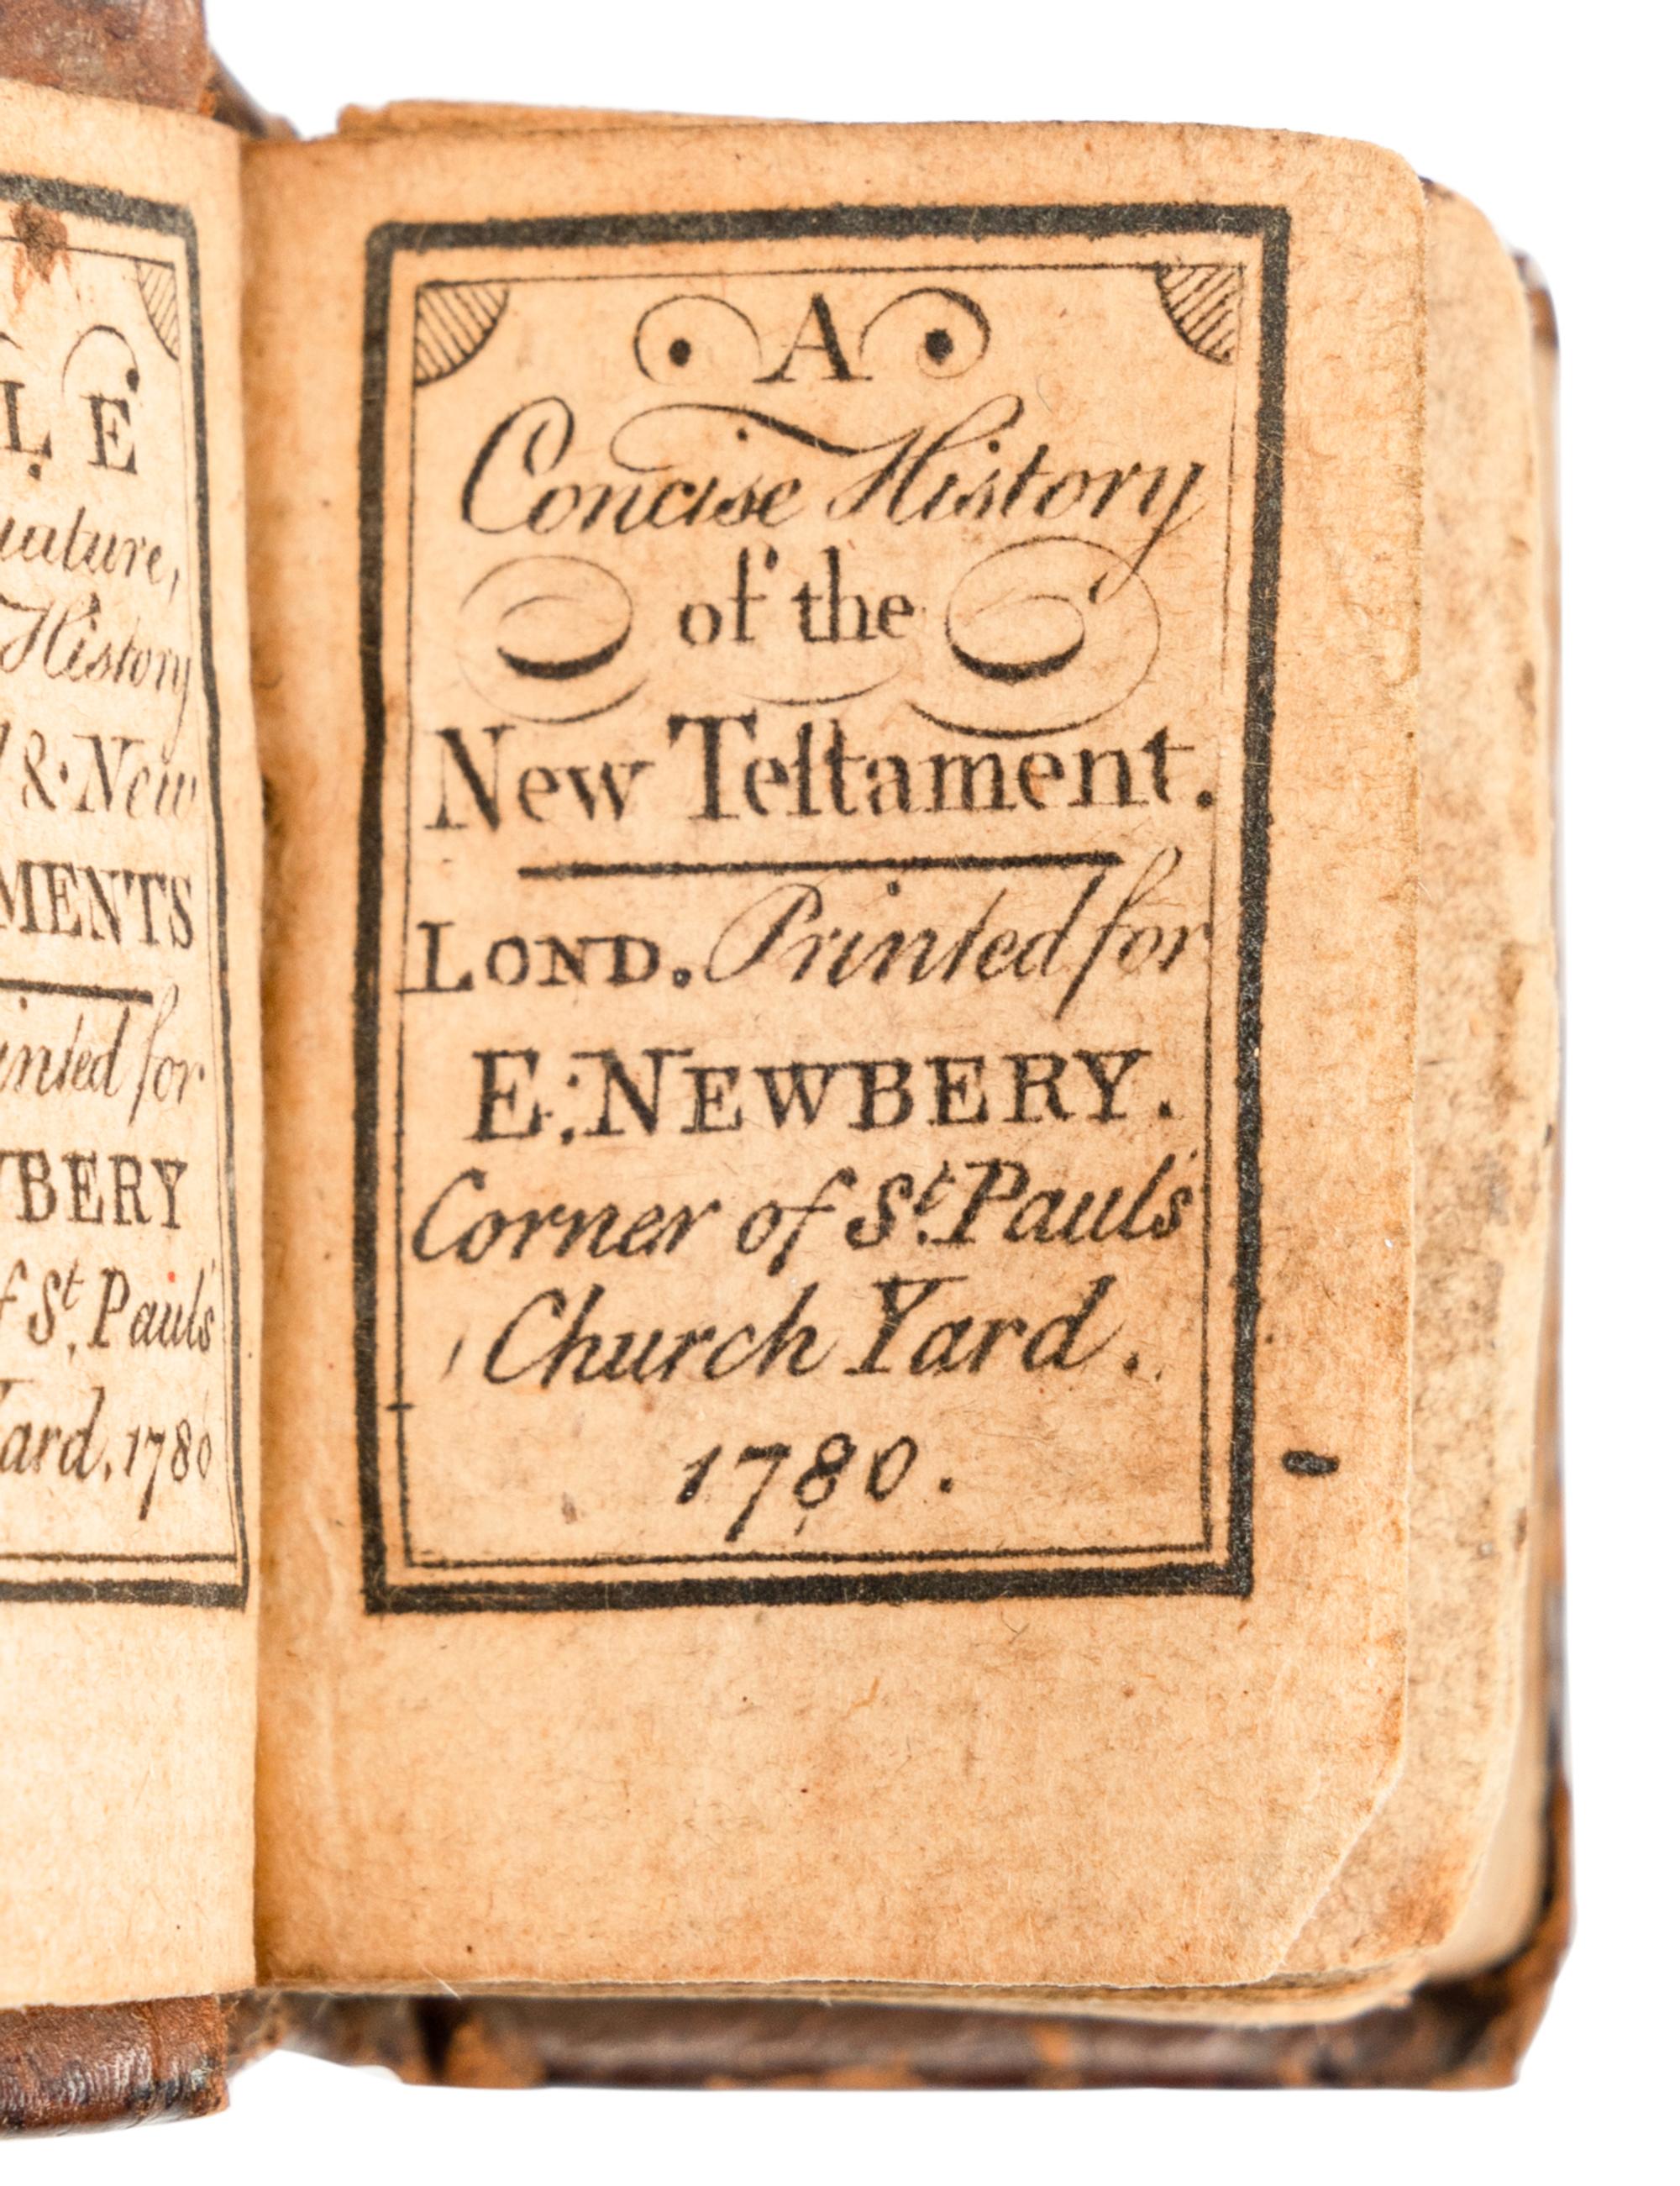 L E
History
& New
MENTS
for
BERY
St. Paul's
1780
A
Concise History
of the
New Teſtament.
LOND. Printed for
E. NEWBERY.
Corner of St. Paul's
Church Yard.
1780.